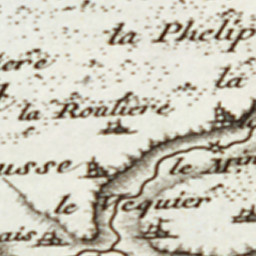 la Phelip
iere
la
la Rouliere
ousse
le Min
le Vequier
ais